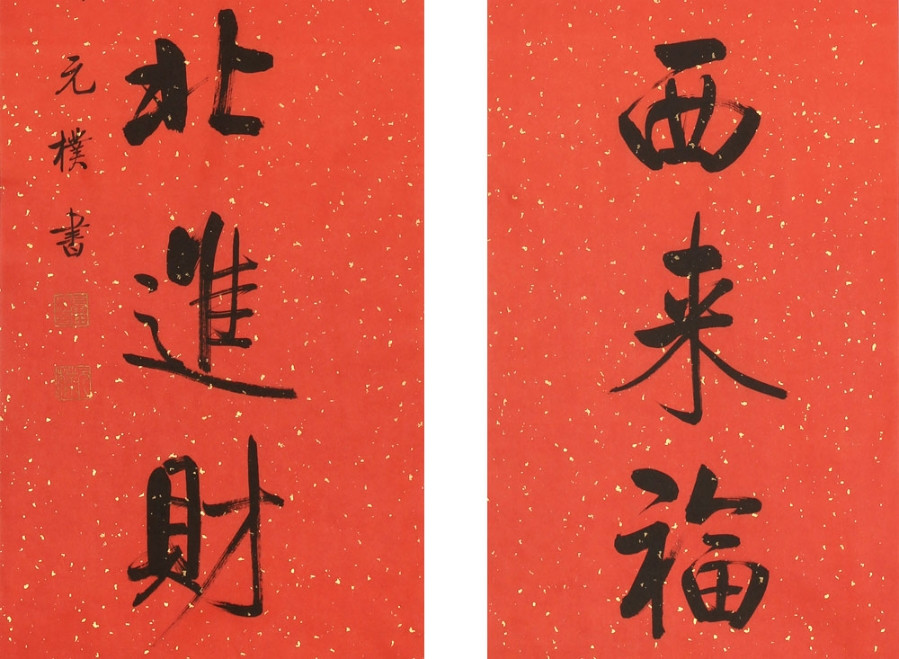 西来福
北進財
元樸書